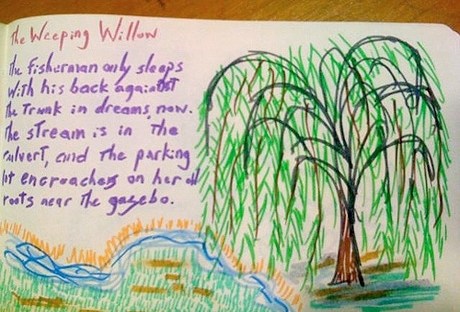 The Weeping Willow
The fisherman only sleeps
With his back against
The Trunk in dreams now.
The stream is in The
culvert, and The parking
lot encroaches on her old
roots near The gazebo.